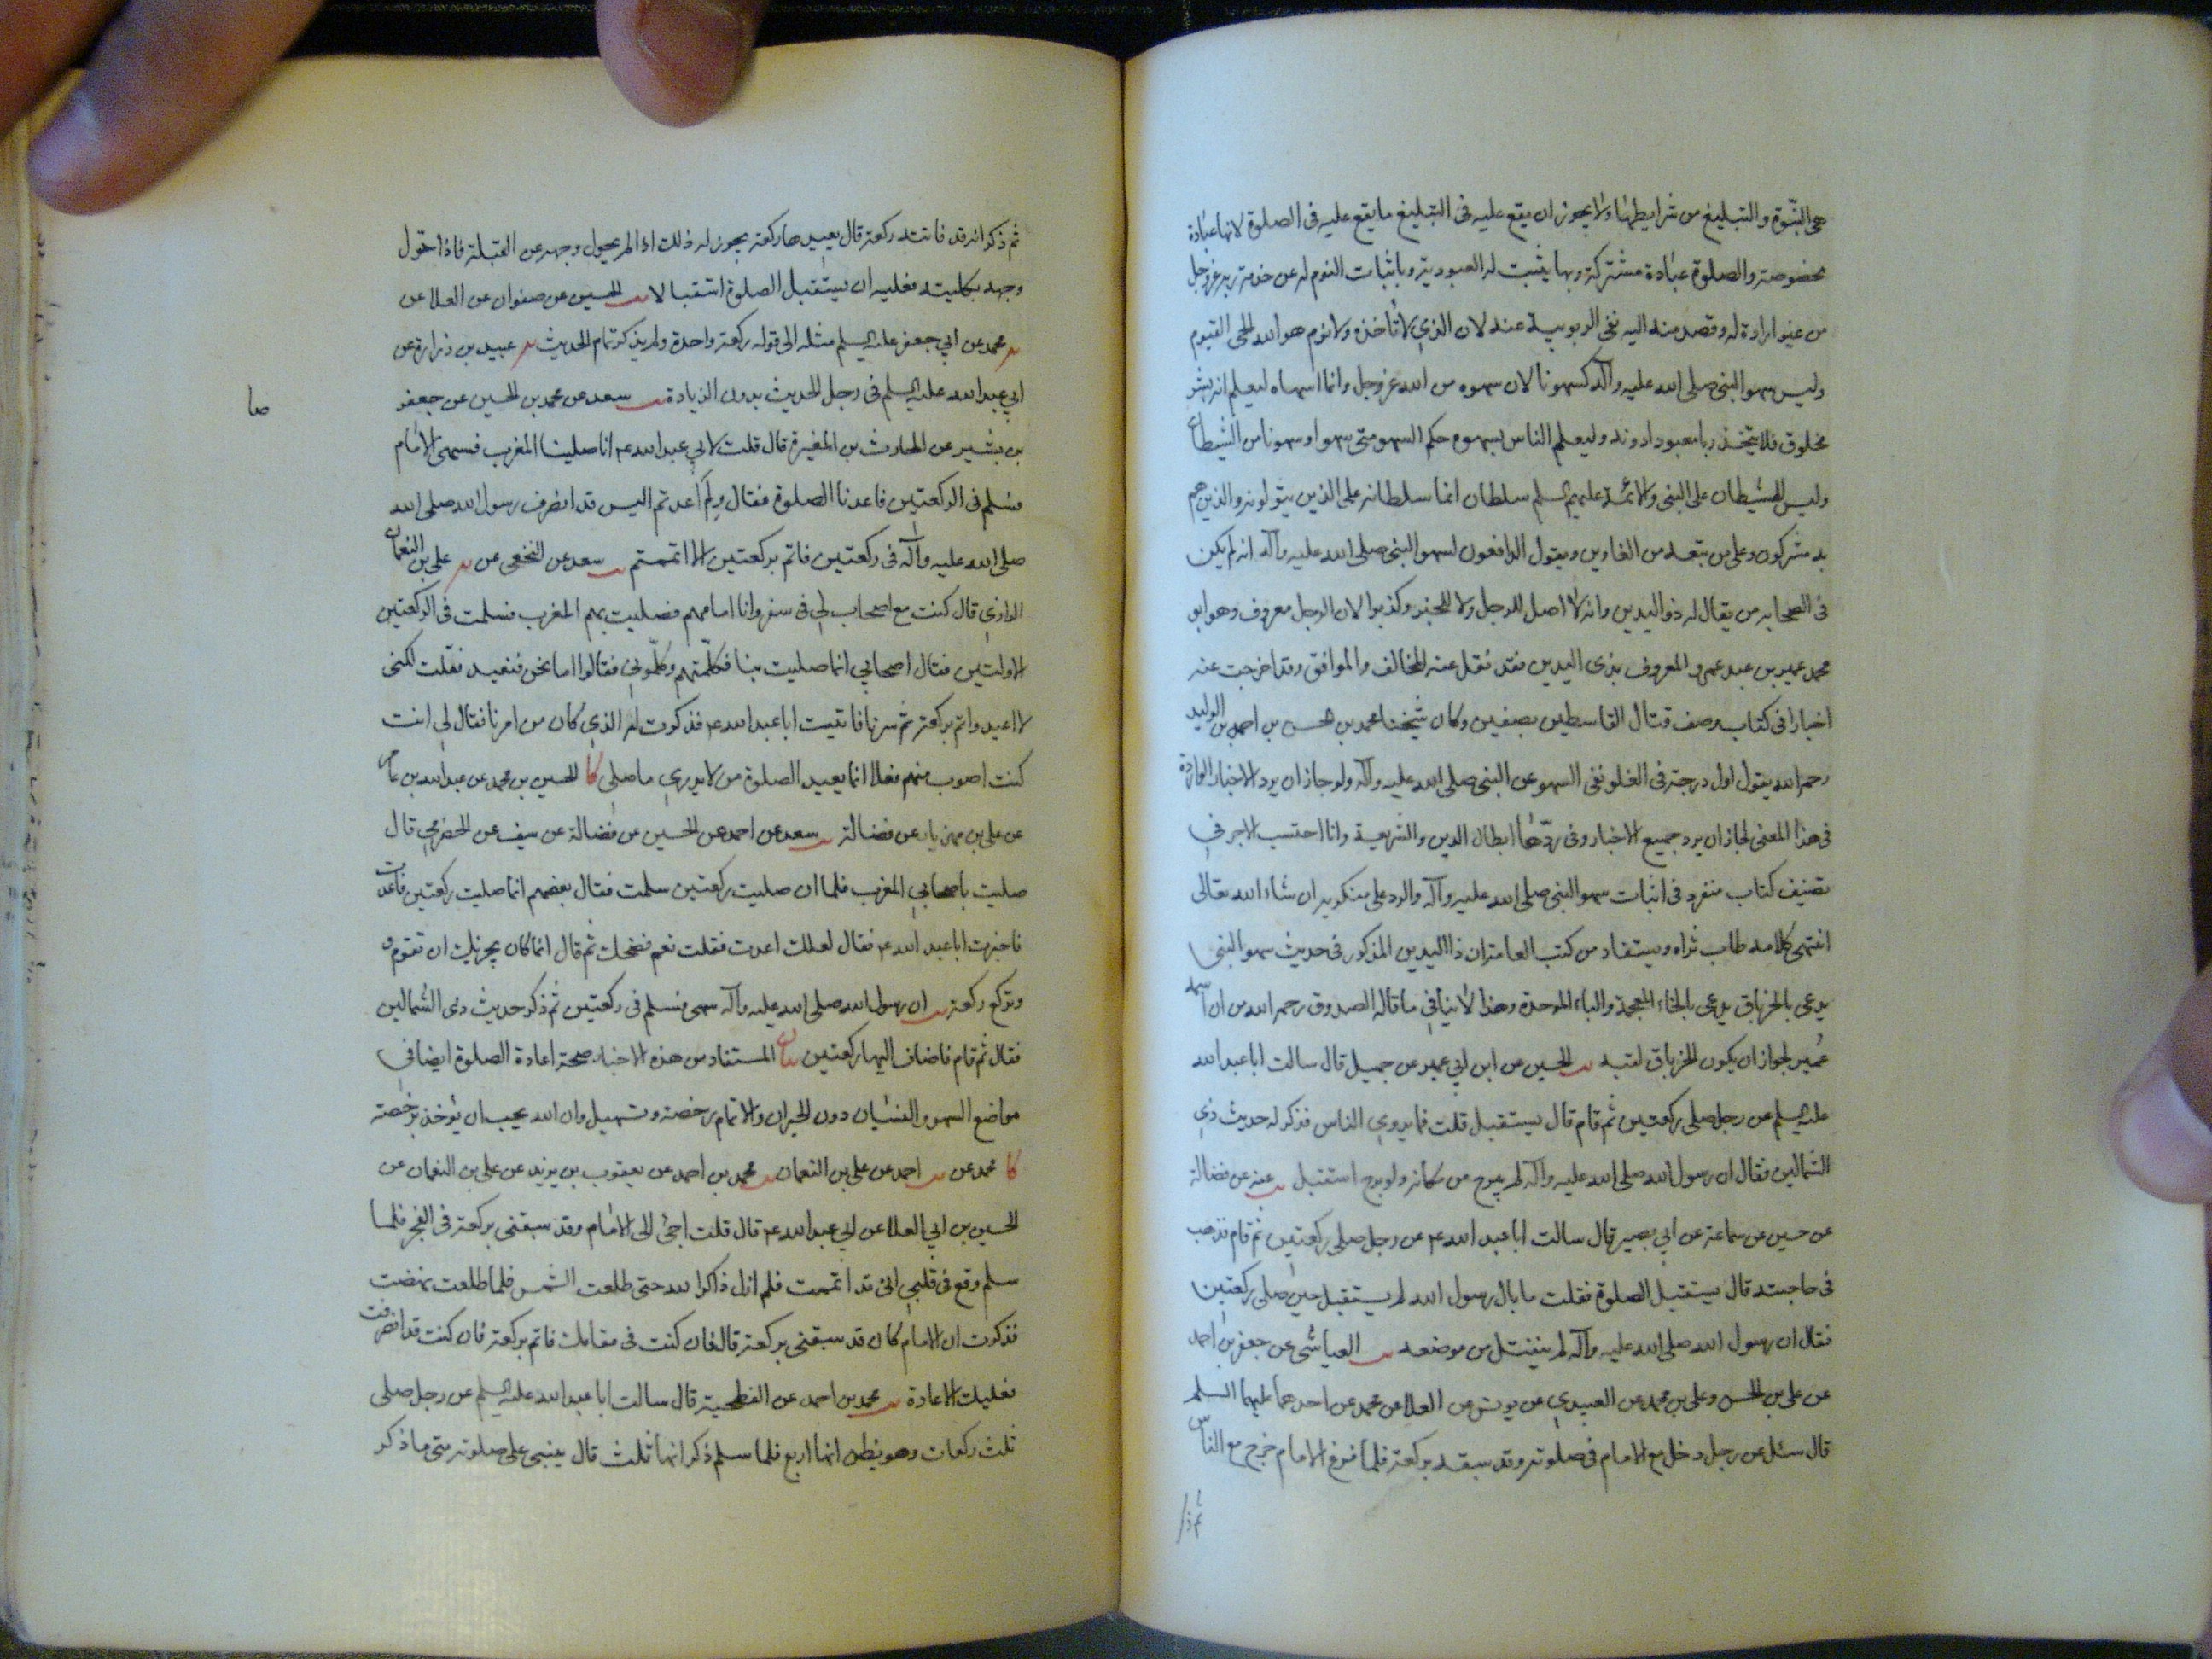 هى النبّوة والتبليغ من شرايطها ولا يجوز ان يقع عليه فى التبليغ ما يقع عليه فى الصلوة لانها عبادة
مخصوصة والصلوة عبادة مشتركة وبها يثبت له العبودية وباثبات النوم له عن خدمة ربه عز وجل
من غير ارادة له وقصد منه اليه نفى الربوبية عنه لان الذي لا تأخذه ولا نوم هو الله الحى القيوم
وليس سهو النبى صلى الله عليه وآله كسهونا لان سهوه من الله عز وجل وانما اسهاه ليعلم انه بشر
مخلوق فلا يتخذ ربا معبودا دونه وليعلم الناس بسهوه حكم السهو متى سهوا وسهونا من الشيطان
وليس للشيطان على النبى والائمة عليهم السلم سلطان انما سلطانه على الذين يتولونه والذين هم
به مشركون وعلى من تبعه من الغاوين ويقول الدافعون لسهو النبى صلى الله عليه وآله انه لم يكن
فى الصحابه من يقال له ذو اليدين وانه لا اصل للرجل ولا للخبر وكذبوا لان الرجل معروف وهو ابو
محمد عمير بن عبد عمرو المعروف بذى اليدين فقد نقل عنه المخالف والموافق وقد اخرجت عنه
اخبارا فى كتاب وصف قتال القاسطين بصفين وكان شيخنا محمد بن الحسن بن احمد بن الوليد
رحمه الله يقول اول درجة فى الغلو نفى السهو عن النبى صلى الله عليه وآله ولو جاز ان يرد الاخبار الواردة
فى هذا المعنى لجاز ان يرد جميع الاخبار وفى ردّها ابطال الدين والشريعة وانا احتسب الاجر في
تصنيف كتاب منفرد فى اثبات سهو النبى صلى الله عليه وآله والرد على منكريه ان شاء الله تعالى
انتهى كلامه طاب ثراه ويستفاد من كتب العامة ان ذا اليدين المذكور فى حديث سهو النبى
يدعى بالخرباق يدعى بالخاء المعجمة والباء الموحدة وهذا لا ينافي ما قاله الصدوق رحمه الله من ان اسمه
عُمير لجواز ان يكون الخرباق لقبه يب الحسين عن ابن ابي عمير عن جميل قال سالت ابا عبد الله
عليه السلم عن رجل صلى ركعتين ثم قام قال يستقبل قلت فما يروي الناس فذكر له حديث ذي
الشمالين فقال ان رسول الله صلى الله عليه وآله لم يبرح من مكانه ولو برح استقبل يب عنه عن فضالة
عن حسين عن سماعة عن ابي بصير قال سالت ابا عبد الله ع عن رجل صلى ركعتين ثم قام فذهب
فى حاجته قال يستقبل الصلوة فقلت ما بال رسول الله لم يستقبل حين صلى ركعتين
فقال ان رسول الله صلى الله عليه وآله لم ينفتل من موضعه يب العياشى عن جعفر بن احمد
عن على بن الحسن وعلى بن محمد عن العبيدي عن يونس عن العلا عن محمد عن احدهما عليهما السلم
قال سئل عن رجل دخل مع الامام فى صلوته وقد سبقه بركعة فلما فرغ الامام خرج مع الناس
ثم ذكر
ثم ذكر انه قد فاتته ركعة قال يعيدها ركعة يجوز له ذلك اذا لم يحول وجهه عن القبلة فاذا حوّل
وجهه بكليته فعليه ان يستقبل الصلوة استقبالا يب الحسين عن صفوان عن العلا عن
يه محمد عن ابي جعفر عليه السلم مثله الى قوله ركعة واحدة ولم يذكر تمام الحديث يه عبيد بن زرارة عن
ابي عبد الله عليه السلم فى رجل الحديث بدون الزيادة يب سعد عن محمد بن الحسين عن جعفر
صا
بن بشير عن الحارث بن المغيرة قال قلت لابي عبد الله ع انا صلينا المغرب فسهى الامام
فسلم فى الركعتين فاعدنا الصلوة فقال ولم اعدتم اليس قد انصرف رسول الله صلى الله
صلى الله عليه وآله فى ركعتين فاتم بركعتين الا اتممتم يب سعد عن النخعى عن يه على بن النعمان
الرازي قال كنت مع اصحاب لي فى سفر وانا امامهم فصليت بهم المغرب فسلمت فى الركعتين
الاولتين فقال اصحابي انما صليت بنا فكلّمتهم وكلّموني فقالوا اما نحن فنعيد فقلت لكنى
لا اعيد واتم بركعة ثم سرنا فاتيت ابا عبد الله ع فذكرت له الذي كان من امرنا فقال لي انت
كنت اصوب منهم فعلا انما يعيد الصلوة من لا يدري ما صلى كا الحسين بن محمد عن عبد الله بن عامر
عن على بن مهزيار عن فضالة يب سعد عن احمد عن الحسين عن فضالة عن سيف عن الحضرمي قال
صليت باصحابي المغرب فلما ان صليت ركعتين سلمت فقال بعضهم انما صليت ركعتين فاعدت
فاخبرت ابا عبد الله ع فقال لعلك اعدت فقلت نعم فضحك ثم قال انما كان يجزيك ان تقوم و
وتركع ركعة يب ان رسول الله صلى الله عليه وآله سهى فسلم فى ركعتين ثم ذكر حديث ذى الشمالين
فقال ثم قام فاضاف اليها ركعتين بيان المستفاد من هذه الاخبار صحة اعادة الصلوة ايضا في
مواضع السهو والنسيان دون الجبران والاتمام رخصة وتسهيل وان الله يحب ان يؤخذ برخصته
كا محمد عن يب احمد عن على بن النعمان يب محمد بن احمد عن يعقوب بن يزيد عن على بن النعمان عن
الحسين بن ابي العلا عن ابي عبد الله ع قال قلت اجئ الى الامام وقد سبقنى بركعة فى الفجر فلما
سلم وقع فى قلبي انى قد اتممت فلم ازل ذاكرا لله حتى طلعت الشمس فلما طلعت نهضت
فذكرت ان الامام كان قد سبقنى بركعة قال فان كنت فى مقامك فاتم بركعة فان كنت قد انصرفت
فعليك الاعادة يب محمد بن احمد عن الفطحية قال سالت ابا عبد الله عليه السلم عن رجل صلى
ثلث ركعات وهو يظن انها اربع فلما سلم ذكر انها ثلث قال يبنى على صلوته متى ما ذكر